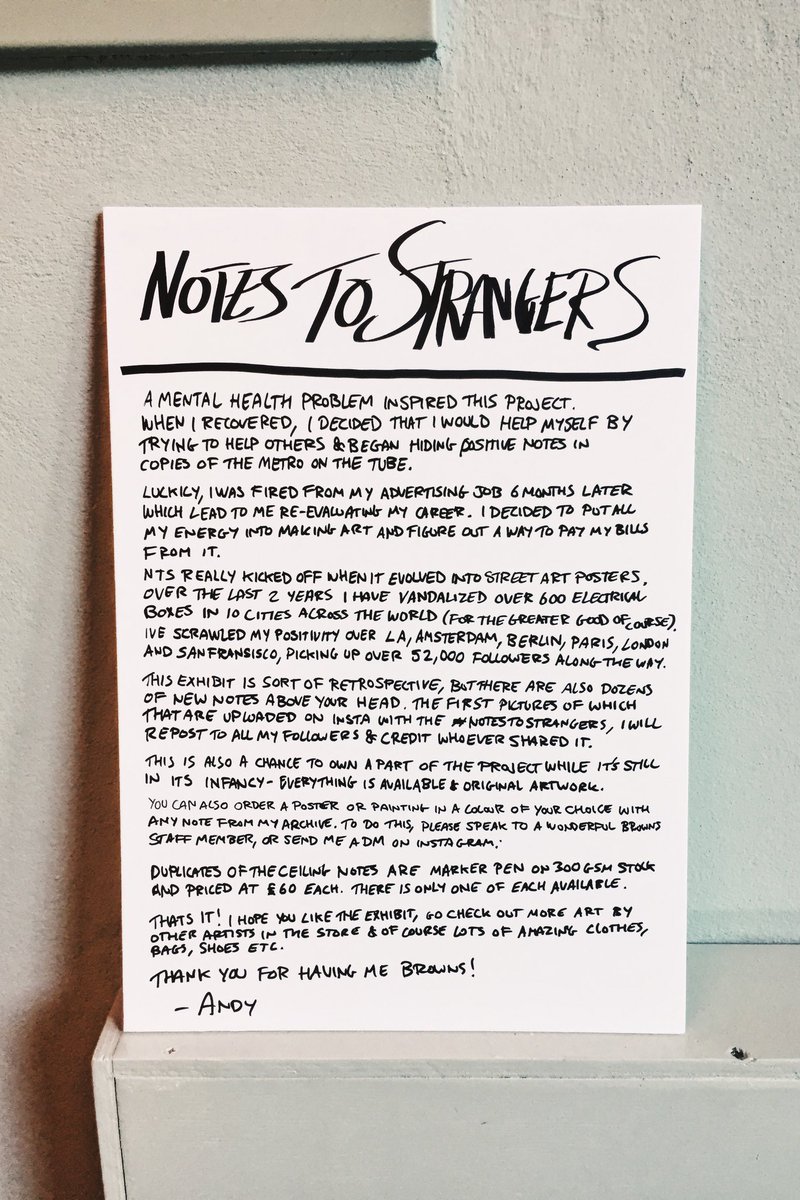 NOTES TO STRANGERS
A MENTAL HEALTH PROBLEM INSPIRED THIS PROJECT.
WHEN I RECOVERED, I DECIDED THAT I WOULD HELP MYSELF BY
TRYING TO HELP OTHERS & BEGAN HIDING POSITIVE NOTES IN
COPIES OF THE METRO ON THE TUBE.
LUCKILY, I WAS FIRED FROM MY ADVERTISING JOB 6 MONTHS LATER
WHICH LEAD TO ME RE-EVALUATING MY CAREER. I DECIDED TO PUT ALL
MY ENERGY INTO MAKING ART AND FIGURE OUT A WAY TO PAY MY BILLS
FROM IT.
NTS REALLY KICKED OFF WHEN IT EVOLVED INTO STREET ART POSTERS,
OVER THE LAST 2 YEARS I HAVE VANDALIZED OVER 600 ELECTRICAL
BOXES IN 10 CITIES ACROSS THE WORLD (FOR THE GREATER GOOD OF COURSE).
IVE SCRAWLED MY POSITIVITY OVER LA, AMSTERDAM, BERLIN, PARIS, LONDON
AND SAN FRANSISCO, PICKING UP OVER 52,000 FOLLOWERS ALONG THE WAY.
THIS EXHIBIT IS SORT OF RETROSPECTIVE, BUT THERE ARE ALSO DOZENS
OF NEW NOTES ABOVE YOUR HEAD. THE FIRST PICTURES OF WHICH
THAT ARE UPLOADED ON INSTA WITH THE #NOTESTOSTRANGERS, I WILL
REPOST TO ALL MY FOLLOWERS & CREDIT WHOEVER SHARED IT.
THIS IS ALSO A CHANCE TO OWN A PART OF THE PROJECT WHILE IT'S STILL
IN ITS INFANCY - EVERYTHING IS AVAILABLE & ORIGINAL ARTWORK.
YOU CAN ALSO ORDER A POSTER OR PAINTING IN A COLOUR OF YOUR CHOICE WITH
ANY NOTE FROM MY ARCHIVE. TO DO THIS, PLEASE SPEAK TO A WONDERFUL BROWNS
STAFF MEMBER, OR SEND ME A DM ON INSTAGRAM.
DUPLICATES OF THE CEILING NOTES ARE MARKER PEN ON 300GSM STOCK
AND PRICED AT £60 EACH. THERE IS ONLY ONE OF EACH AVAILABLE.
THATS IT! I HOPE YOU LIKE THE EXHIBIT, GO CHECK OUT MORE ART BY
OTHER ARTISTS IN THE STORE & OF COURSE LOTS OF AMAZING CLOTHES,
BAGS, SHOES ETC.
THANK YOU FOR HAVING ME BROWNS!
- ANDY